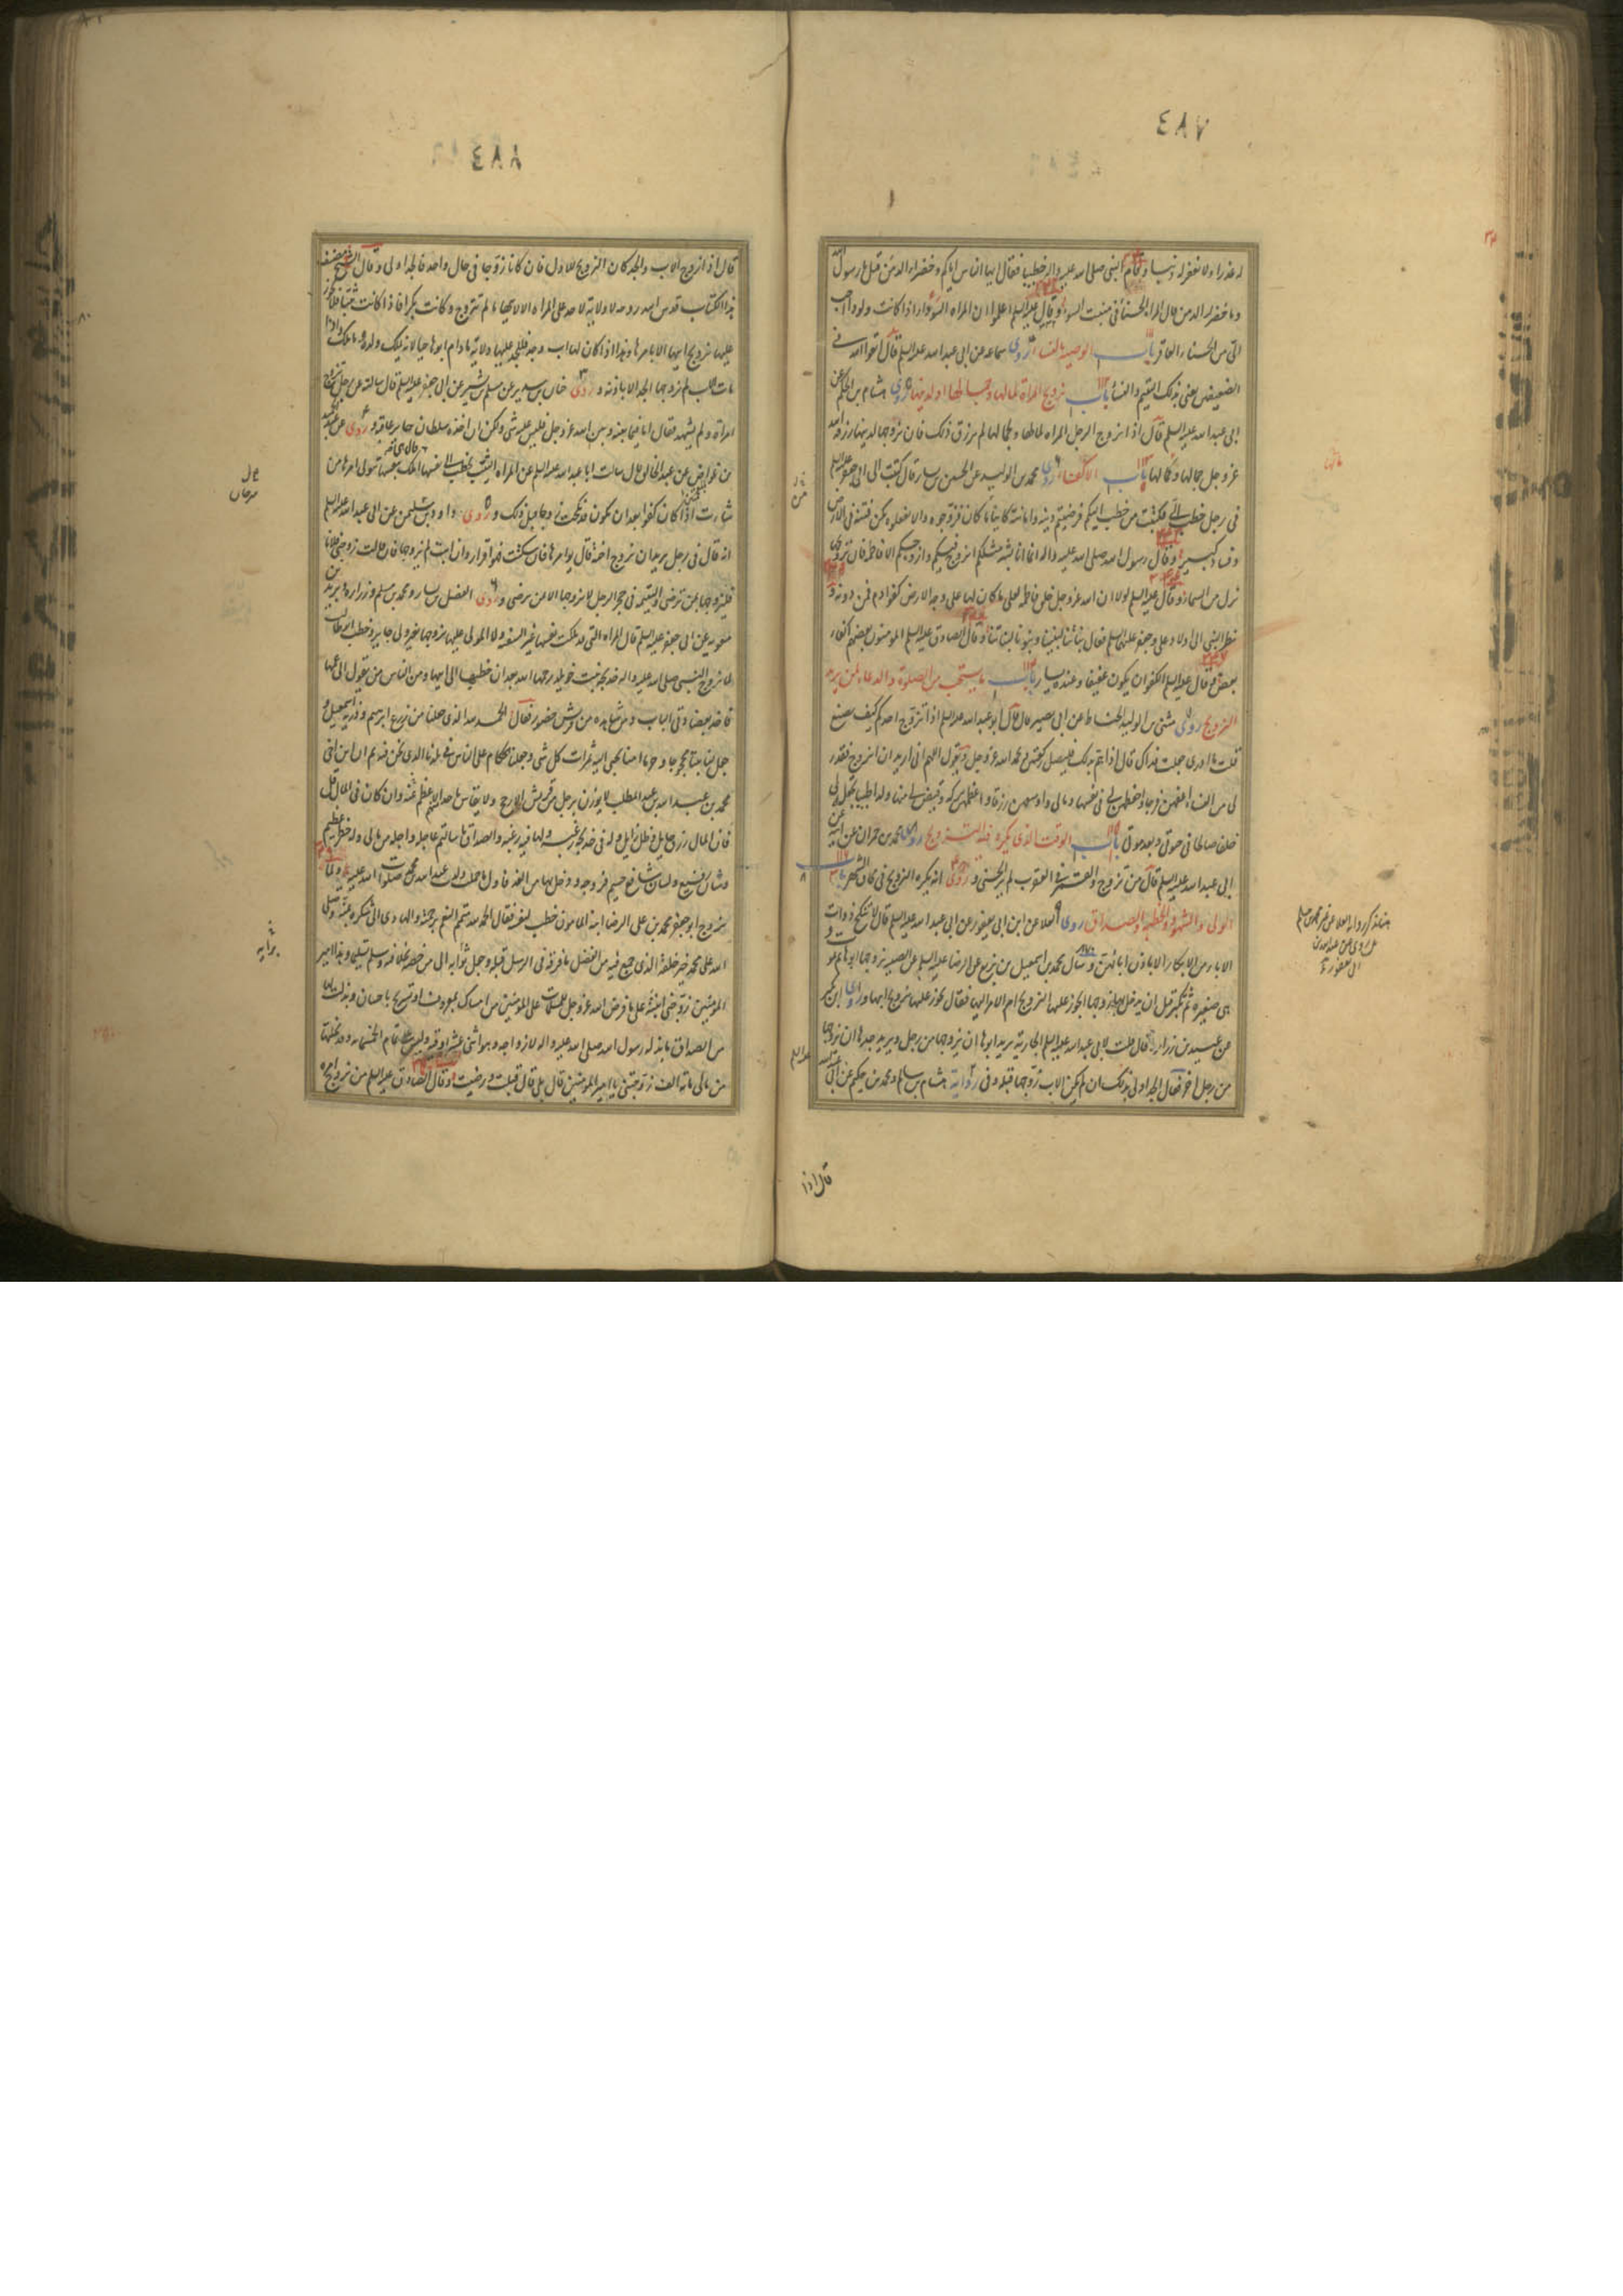 ٤٨٧
له عذرا ولا تغفر له ذنبا وقام النبي صلى الله عليه واله خطيبا فقال ايها الناس اياكم وخضراء الدمن قيل يا رسول الله
وما خضراء الدمن قال المراة الحسناء في منبت السوء وقال عليه السلم اعلموا ان المراة السوداء اذا كانت ولودا احب
الى من الحسناء العاقر باب الوصية بالنساء روى سماعه عن ابى عبد الله عليه السلم قال اتقوا الله في
الضعيفين يعنى بذلك اليتيم والنساء باب تزويج المراة لمالها وجمالها او لدينها روى هشام بن الحكم عن
ابى عبد الله عليه السلم قال اذا تزوج الرجل المراة لمالها وجمالها لم يرزق ذلك فان تزوجها لدينها رزقه الله
عز وجل جمالها ومالها باب الاكفاء روى محمد بن الوليد عن الحسين بن بشار قال كتبت الى ابى جعفر عليه السلم
في رجل خطب الى فكتب من خطب اليكم فرضيتم دينه وامانته كائنا ما كان فزوجوه والا تفعلوه تكن فتنة في الارض
وفساد كبير وقال رسول الله صلى الله عليه واله انما انا بشر مثلكم اتزوج فيكم وازوجكم الا فاطمة فان تزويجها
نزل من السماء وقال عليه السلم لولا ان الله عز وجل خلق فاطمة لعلى ما كان لها على وجه الارض كفو ادم فمن دونه و
نظر النبي الى اولاد على وجعفر عليهم السلم فقال بناتنا لبنينا وبنونا لبناتنا وقال الصادق عليه السلم المومنون بعضهم اكفاء
بعض وقال عليه السلم الكفو ان يكون عفيفا وعنده يسار باب ما يستحب من الصلوة والدعاء لمن يريد
التزويج روى مثنى بن الوليد الحناط عن ابى بصير قال قال ابو عبد الله عليه السلم اذا تزوج احدكم كيف يصنع
قلت ما ادرى جعلت فداك قال اذا هم بذلك فليصل ركعتين وليحمد الله عز وجل ويقول اللهم انى اريد ان اتزوج فقدر
لى من النساء اعفهن فرجا واحفظهن لى في نفسها ومالى واوسعهن رزقا واعظمهن بركة وقيض لى منها ولدا طيبا تجعله لى
خلفا صالحا في حيوتى وبعد موتى باب الوقت الذى يكره فيه التزويج روى محمد بن حمران عن ابيه عن
ابى عبد الله عليه السلم قال من تزوج والقمر في العقرب لم ير الحسنى وروى انه يكره التزويج في محاق الشهر باب
الولى والشهود والخطبة والصداق روى العلا عن ابن ابى يعفور عن ابى عبد الله عليه السلم قال لا تنكح ذوات
الاباء من الابكار الا باذن ابائهن وسال محمد بن اسمعيل بن بزيع عن الرضا عليه السلم عن الصبيه يزوجها ابوها ثم يموت و
هى صغيرة ثم تكبر قبل ان يدخل بها زوجها ايجوز عليها التزويج ام الامر اليها فقال يجوز عليها تزويج ابيها وروى ابن بكير
عن عبيد بن زراره قال قلت لابى عبد الله عليه السلم الجارية يريد ابوها ان يزوجها من رجل ويريد جدها ان يزوجها
من رجل اخر فقال الجد اولى بذلك ان لم يكن الاب زوجها قبله وفى رواية هشام بن سالم ومحمد بن حكيم عن ابى عبد الله
عليه السلم
قال اذا
٤٨٨
قال اذا زوج الاب والجد كان التزويج للاول فان كانا زوجا في حال واحد فالجد اولى وقال الشيخ مصنف
هذا الكتاب قدس الله روحه لا ولاية لاحد على المراة الا لابيها ما لم تتزوج وكانت بكرا فاذا كانت ثيبا فلا يجوز
عليها تزويج ابيها الا بامرها وهذا اذا كان لها اب وجد فللجد عليها ولاية ما دام ابوها حيا لانه يملك ولده وما ملك فاذا
مات الاب لم يزوجها الجد الا باذنه وروى حنان بن سدير عن مسلم بن بشير عن ابى جعفر عليه السلم قال سالته عن رجل تزوج
امراة ولم يشهد فقال اما فيما بينه وبين الله عز وجل فليس عليه شى ولكن ان اخذه سلطان جاير عاقبه وروى عن عبد الحميد
بن عواض عن عبد الخالق قال سالت ابا عبد الله عليه السلم عن المراة الثيب تخطب الى نفسها قال هى املك بنفسها تولى امرها من
شاءت اذا كان كفوا بعد ان تكون قد نكحت زوجا قبل ذلك وروى داود بن سليمن عن ابى عبد الله عليه السلم
انه قال في رجل يريد ان يزوج اخته قال يوامرها فان سكتت فهو اقرارها وان ابت لم يزوجها فان قالت زوجنى فلانا
فليزوجها ممن ترضى واليتيمة في حجر الرجل لا يزوجها الا ممن ترضى وروى الفضيل بن يسار ومحمد بن مسلم وزراره وبريد بن
معويه عن ابى جعفر عليه السلم قال المراة التى قد ملكت نفسها غير السفيه ولا المولى عليها تزوجها بغير ولى جايز وخطب ابو طالب
لما تزوج النبي صلى الله عليه واله خديجة بنت خويلد رحمها الله بعد ان خطبها الى ابيها ومن الناس من يقول الى عمها
فاخذ بعضادتى الباب ومن شاهده من قريش حضور فقال الحمد لله الذى جعلنا من زرع ابرهيم وذرية اسمعيل و
جعل لنا بيتا محجوجا وحرما امنا يجبى اليه ثمرات كل شى وجعلنا الحكام على الناس في بلدنا الذى نحن فيه ثم ان ابن اخى
محمد بن عبد الله بن عبد المطلب لا يوزن برجل من قريش الا رجح ولا يقاس باحد الا عظم عنه وان كان في المال قل
فان المال رزق حايل وظل زايل وله في خديجة رغبة ولها فيه رغبه والصداق ما سالتم عاجله واجله من مالى وله خطر عظيم
وشان رفيع ولسان شافع جسيم فزوجه ودخل بها من الغد فاول ما حملت ولدت عبد الله بن محمد صلوات الله عليه ولما
تزوج ابو جعفر محمد بن على الرضا ابنة المامون خطب لنفسه فقال الحمد لله متم النعم برحمته والهادى الى شكره بمنه وصلى
الله على محمد خير خلقه الذى جمع فيه من الفضل ما فرقه في الرسل قبله وجعل تراثه الى من خصه بخلافته وسلم تسليما وهذا امير
المؤمنين زوجنى ابنته على ما فرض الله عز وجل للمسلمات على المؤمنين من امساك بمعروف او تسريح باحسان وبذلت لها
من الصداق ما بذله رسول الله صلى الله عليه واله لازواجه وهو اثنتى عشرة اوقيه ونش على تمام الخمسمايه وقد نحلتها
من مالى ماية الف زوجتنى يا امير المؤمنين قال بلى قال قبلت ورضيت وقال الصادق عليه السلم من تزوج امراة